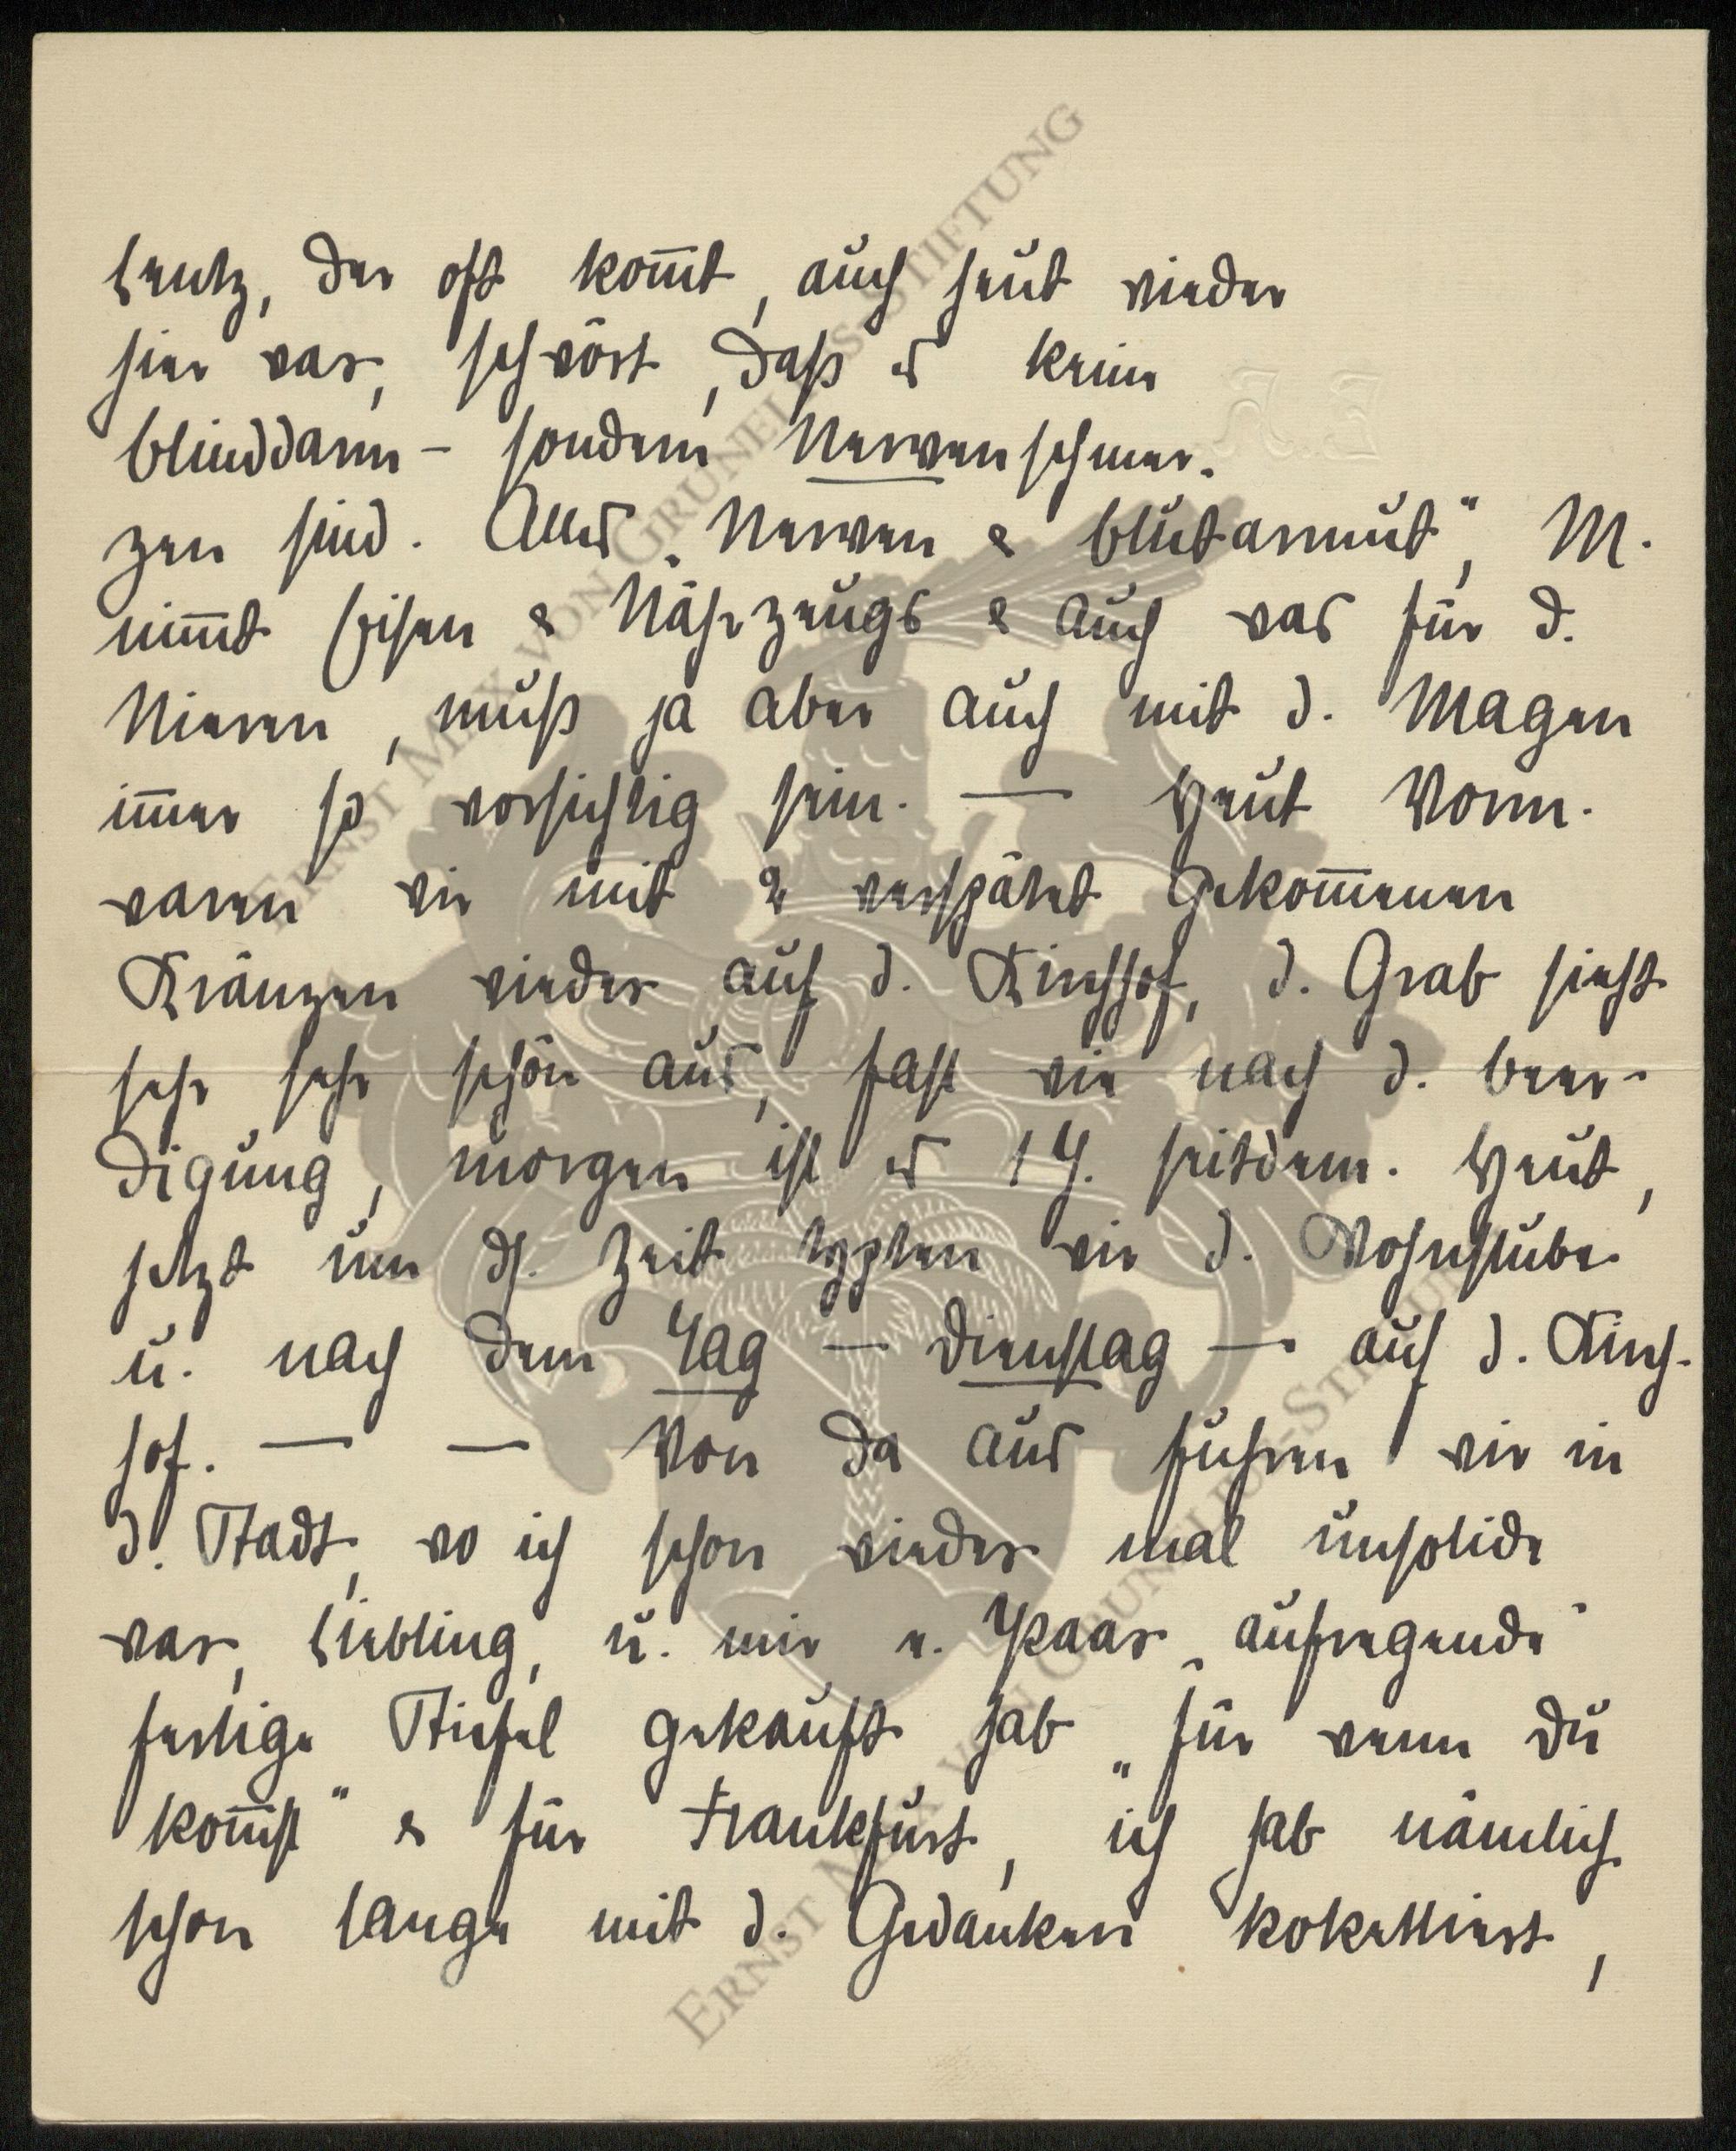 Lentz, der oft kom̅t, auch heut wieder
hier war, schwört, daß es keine
Blinddarm- sondern Nervenschmer-
zen sind. Alles „Nerven & Blutarmut", M.
nim̅t Eisen & Nährzeugs & auch was für d.
Nieren, muß ja aber auch mit d. Magen
im̅er so vorsichtig sein. — Heut Vorm.
waren wir mit 2 verspätet gekom̅enen
Kränzen wieder auf d. Kirchhof, d. Grab sieht
sehr sehr schön aus, fast wie nach d. Beer-
digung, morgen ist es 1 J. seitdem. Heut,
jetzt um ds. Zeit
wir d. Wohnstube
u. nach dem Tag — Dienstag — auf d. Kirch-
hof. — — Von da aus fuhren wir in
d. Stadt, wo ich schon wieder mal unsolide
war, Liebling, u. mir e. Paar „aufregende"
fertige Stiefel gekauft hab „für wenn Du
kom̅st" & für Frankfurt, ich hab nämlich
schon lange mit d. Gedanken kokettiert,
E.K.
ERNST MAX VON GRUNELIUS-STIFTUNG
ERNST MAX VON GRUNELIUS-STIFTUNG